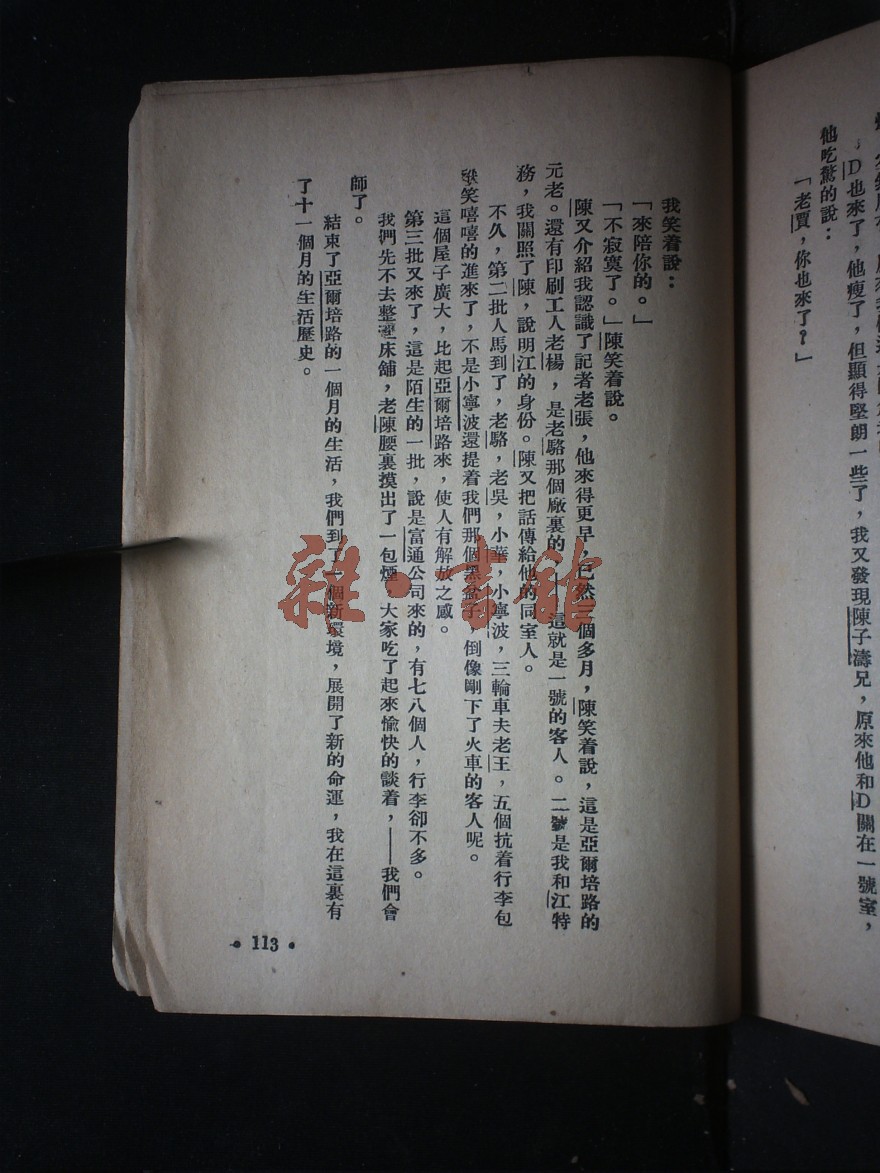 ，D也來了，他瘦了，但顯得堅朗一些了，我又發現陳子濤兄，原來他和D關在一號室，
他吃驚的說：
「老賈，你也來了？」
我笑着說：
「來陪你的。」
「不寂寞了。」陳笑着說。
陳又介紹我認識了記者老張，他來得更早，已然三個多月，陳笑着說，這是亞爾培路的
元老。還有印刷工人老楊，是老駱那個廠裏的——這就是一號的客人。二號是我和江特
務，我關照了陳，說明江的身份。陳又把話傳給他的同室人。
不久，第二批人馬到了，老駱，老吳，小華，小寧波，三輪車夫老王，五個抗着行李包
笑嘻嘻的進來了，不是小寧波還提着我們那個黑盆子，倒像剛下了火車的客人呢。
這個屋子廣大，比起亞爾培路來，使人有解放之感。
第三批又來了，這是陌生的一批，說是富通公司來的，有七八個人，行李卻不多。
我們先不去整理床舖，老陳腰裏摸出了一包煙，大家吃了起來愉快的談着，——我們會
師了。
結束了亞爾培路的一個月的生活，我們到了一個新環境，展開了新的命運，我在這裏有
了十一個月的生活歷史。
• 113 •
雜·書館